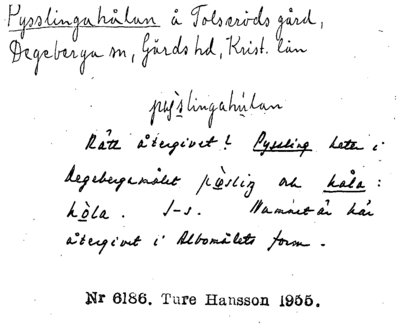 Pysslingahålan å Tolseröds gård,
Degeberga sn, Gärds hd, Krist. län
pyslingahulan
Rätt återgivet? Pyssling heter i
Degebergamålet pøsliŋ och håla :
hòla. S-s. Namnet är här
återgivet i Albomålets form.
Nr 6186. Ture Hansson 1955.